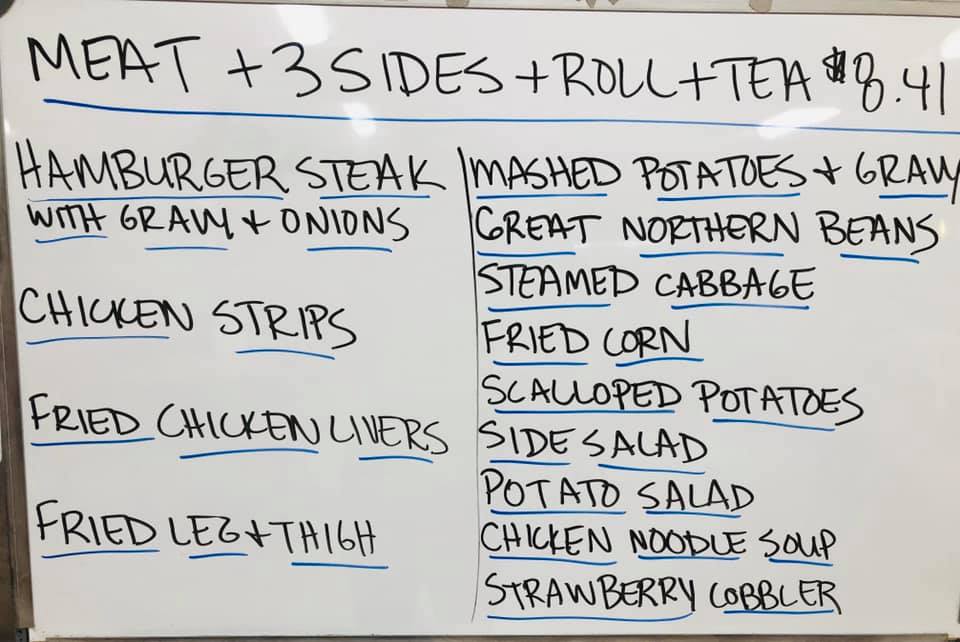 MEAT + 3 SIDES + ROLL + TEA $8.41
HAMBURGER STEAK
WITH GRAVY + ONIONS
CHICKEN STRIPS
FRIED CHICKEN LIVERS
FRIED LEG + THIGH
MASHED POTATOES + GRAVY
GREAT NORTHERN BEANS
STEAMED CABBAGE
FRIED CORN
SCALLOPED POTATOES
SIDE SALAD
POTATO SALAD
CHICKEN NOODLE SOUP
STRAWBERRY COBBLER